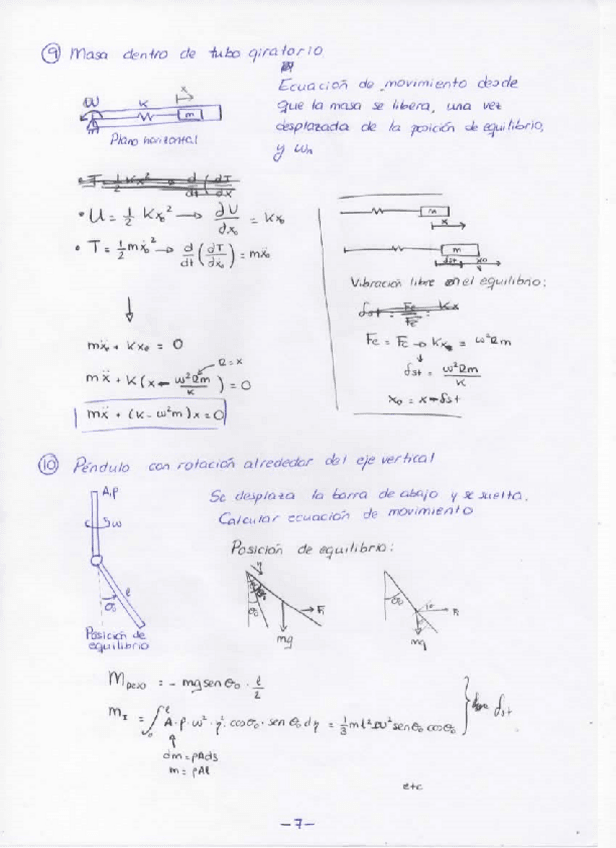 ⑨ Masa dentro de tubo giratorio
Ecuación de movimiento desde
que la masa se libera, una vez
desplazada de la posición de equilibrio,
y ωn
ω
K
x
m
Plano horizontal
• U = 1/2 K x₀² → dU/dx₀ = K x₀
• T = 1/2 m ẋ₀² → d/dt (dT/dẋ₀) = m ẍ₀
↓
m ẍ₀ + K x₀ = 0
R = x
m ẍ + K (x - ω²Rm/K) = 0
m ẍ + (K - ω²m) x = 0
m
x
m
δst x₀
Vibración libre en el equilibrio:
Fe = Fc → K x = ω²Rm
↓
δst = ω²Rm/K
x₀ = x - δst
⑩ Péndulo con rotación alrededor del eje vertical
A,ρ
ω
ℓ
θ₀
Posición de
equilibrio
Se desplaza la barra de abajo y se suelta.
Calcular ecuación de movimiento
Posición de equilibrio:
θ₀
mg
θ₀
mg
M peso = - mg sen θ₀ · ℓ/2
m I = ∫₀^ℓ A·ρ·ω²·η²·cosθ₀·senθ₀ dη = 1/3 mℓ²ω² senθ₀ cosθ₀
δst
dm = ρAds
m = ρAℓ
etc
-7-